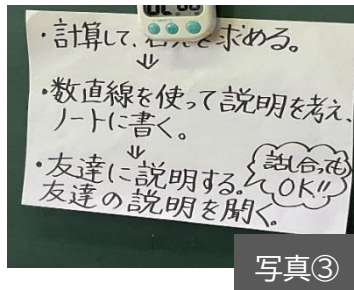 ・計算して、答えを求める。
⇓
・数直線を使って説明を考え、
ノートに書く。
⇓
・友達に説明する。
友達の説明を聞く。
話し合っても
OK!!
写真③